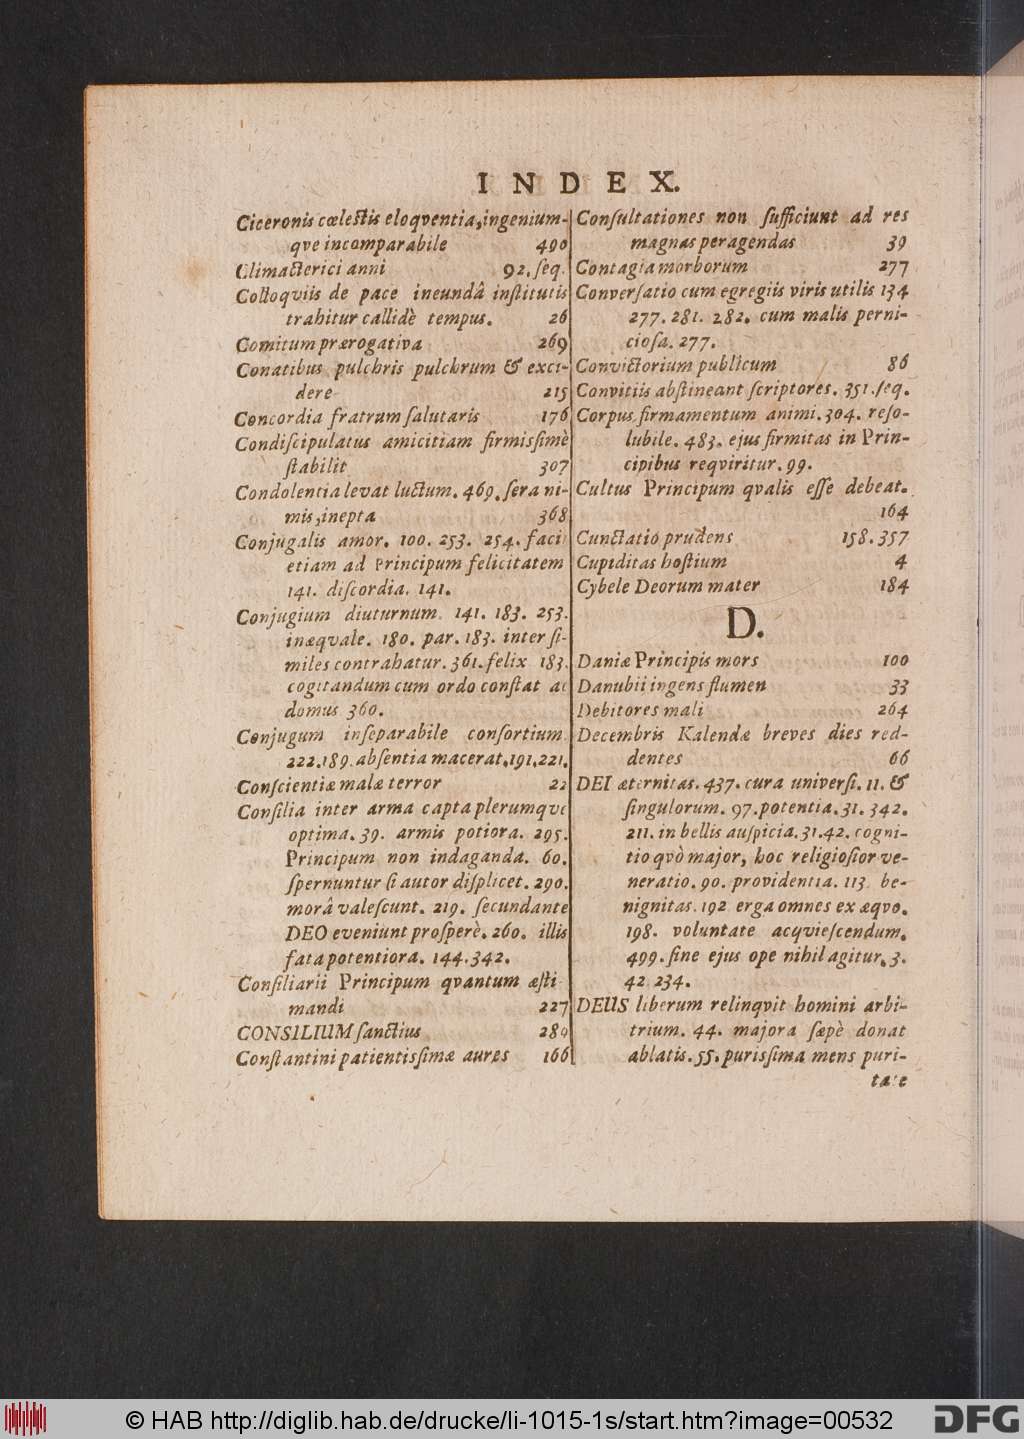 INDEX.
Ciceronis cœlestis eloqventia, ingenium-
qve incomparabile 490
Climacterici anni 92. seq.
Colloqviis de pace ineundâ institutis
trahitur callidè tempus. 26
Comitum prærogativa 269
Conatibus pulchris pulchrum & exci-
dere 215
Concordia fratrum salutaris 176
Condiscipulatus amicitiam firmissimè
stabilit 307
Condolentia levat luctum. 469. sera ni-
mis, inepta 368
Conjugalis amor. 100. 253. 254. faci
etiam ad Principum felicitatem
141. discordia. 141.
Conjugium diuturnum. 141. 183. 253.
inæqvale. 180. par. 183. inter si-
miles contrahatur. 361. felix 183.
cogitandum cum ordo constat ac
domus 360.
Conjugum inseparabile consortium.
222. 189. absentia macerat. 191. 221.
Conscientiæ malæ terror 22
Consilia inter arma capta plerumqve
optima. 39. armis potiora. 295.
Principum non indaganda. 60.
spernuntur si autor displicet. 290.
morâ valescunt. 219. secundante
DEO eveniunt prosperè. 260. illis
fata potentiora. 144. 342.
Consiliarii Principum qvantum æsti
mandi 227
CONSILIUM sanctius 280
Constantini patientissimæ aures 166
Consultationes non sufficiunt ad res
magnas peragendas 39
Contagia morborum 277
Conversatio cum egregiis viris utilis 134
277. 281. 282. cum malis perni-
ciosa. 277.
Convictorium publicum 86
Convitiis abstineant scriptores. 351. seq.
Corpus firmamentum animi. 304. reso-
lubile. 483. ejus firmitas in Prin-
cipibus reqviritur. 99.
Cultus Principum qvalis esse debeat.
164
Cunctatio prudens 158. 357
Cupiditas hostium 4
Cybele Deorum mater 184
D.
Daniæ Principis mors 100
Danubii ingens flumen 33
Debitores mali 264
Decembris Kalendæ breves dies red-
dentes 66
DEI æternitas. 437. cura universi. 11. &
singulorum. 97. potentia. 31. 342.
211. in bellis auspicia. 31. 42. cogni-
tio qvò major, hoc religiosior ve-
neratio. 90. providentia. 113. be-
nignitas. 192. erga omnes ex æqvo.
198. voluntate acqviescendum.
499. sine ejus ope nihil agitur. 3.
42. 234.
DEUS liberum relinqvit homini arbi-
trium. 44. majora sæpè donat
ablatis. 55. purissima mens puri-
tate
© HAB http://diglib.hab.de/drucke/li-1015-1s/start.htm?image=00532
DFG